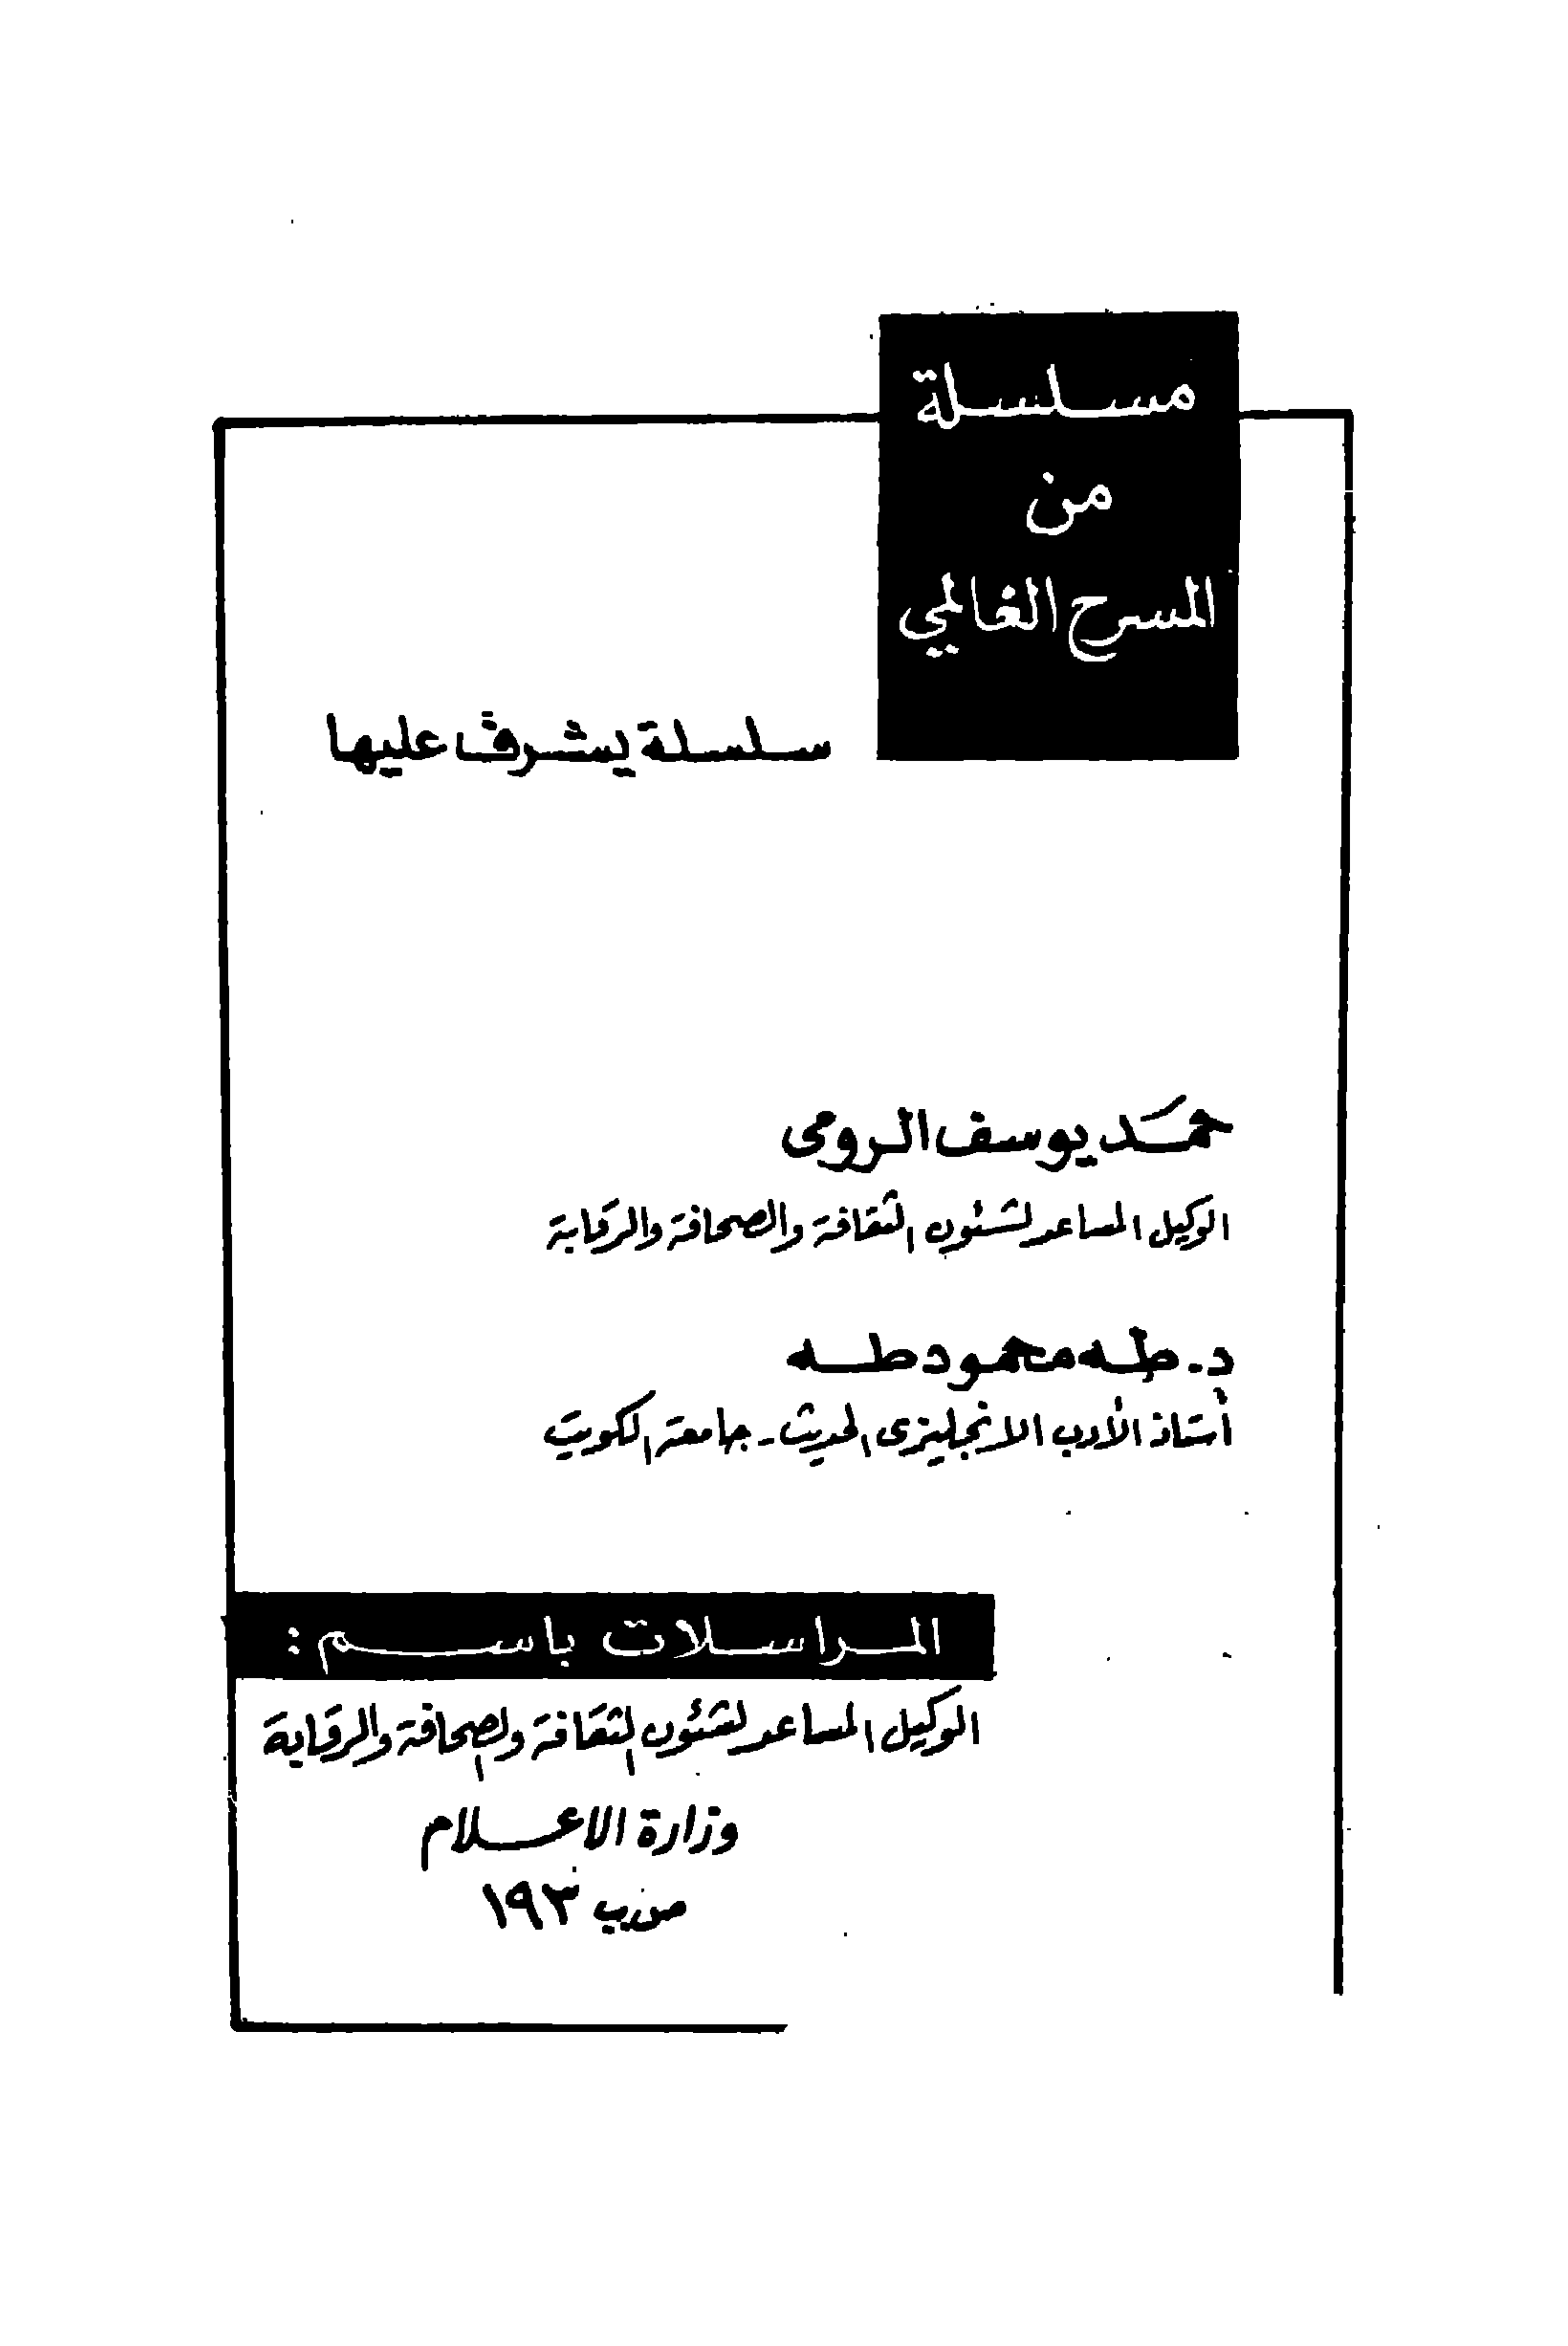 مسلسلة
من
المسرح العالمي
سلسلة يشرف عليها
حمد يوسف الرومى
الوكيل المساعد لشئون الثقافة والصحافة والرقابة
د. طه محمود طه
أستاذ الأدب الانجليزى الحديث - جامعة الكويت
المراسلات باسم :
الوكيل المساعد لشئون الثقافة والصحافة والرقابة
وزارة الاعلام
ص.ب ١٩٣